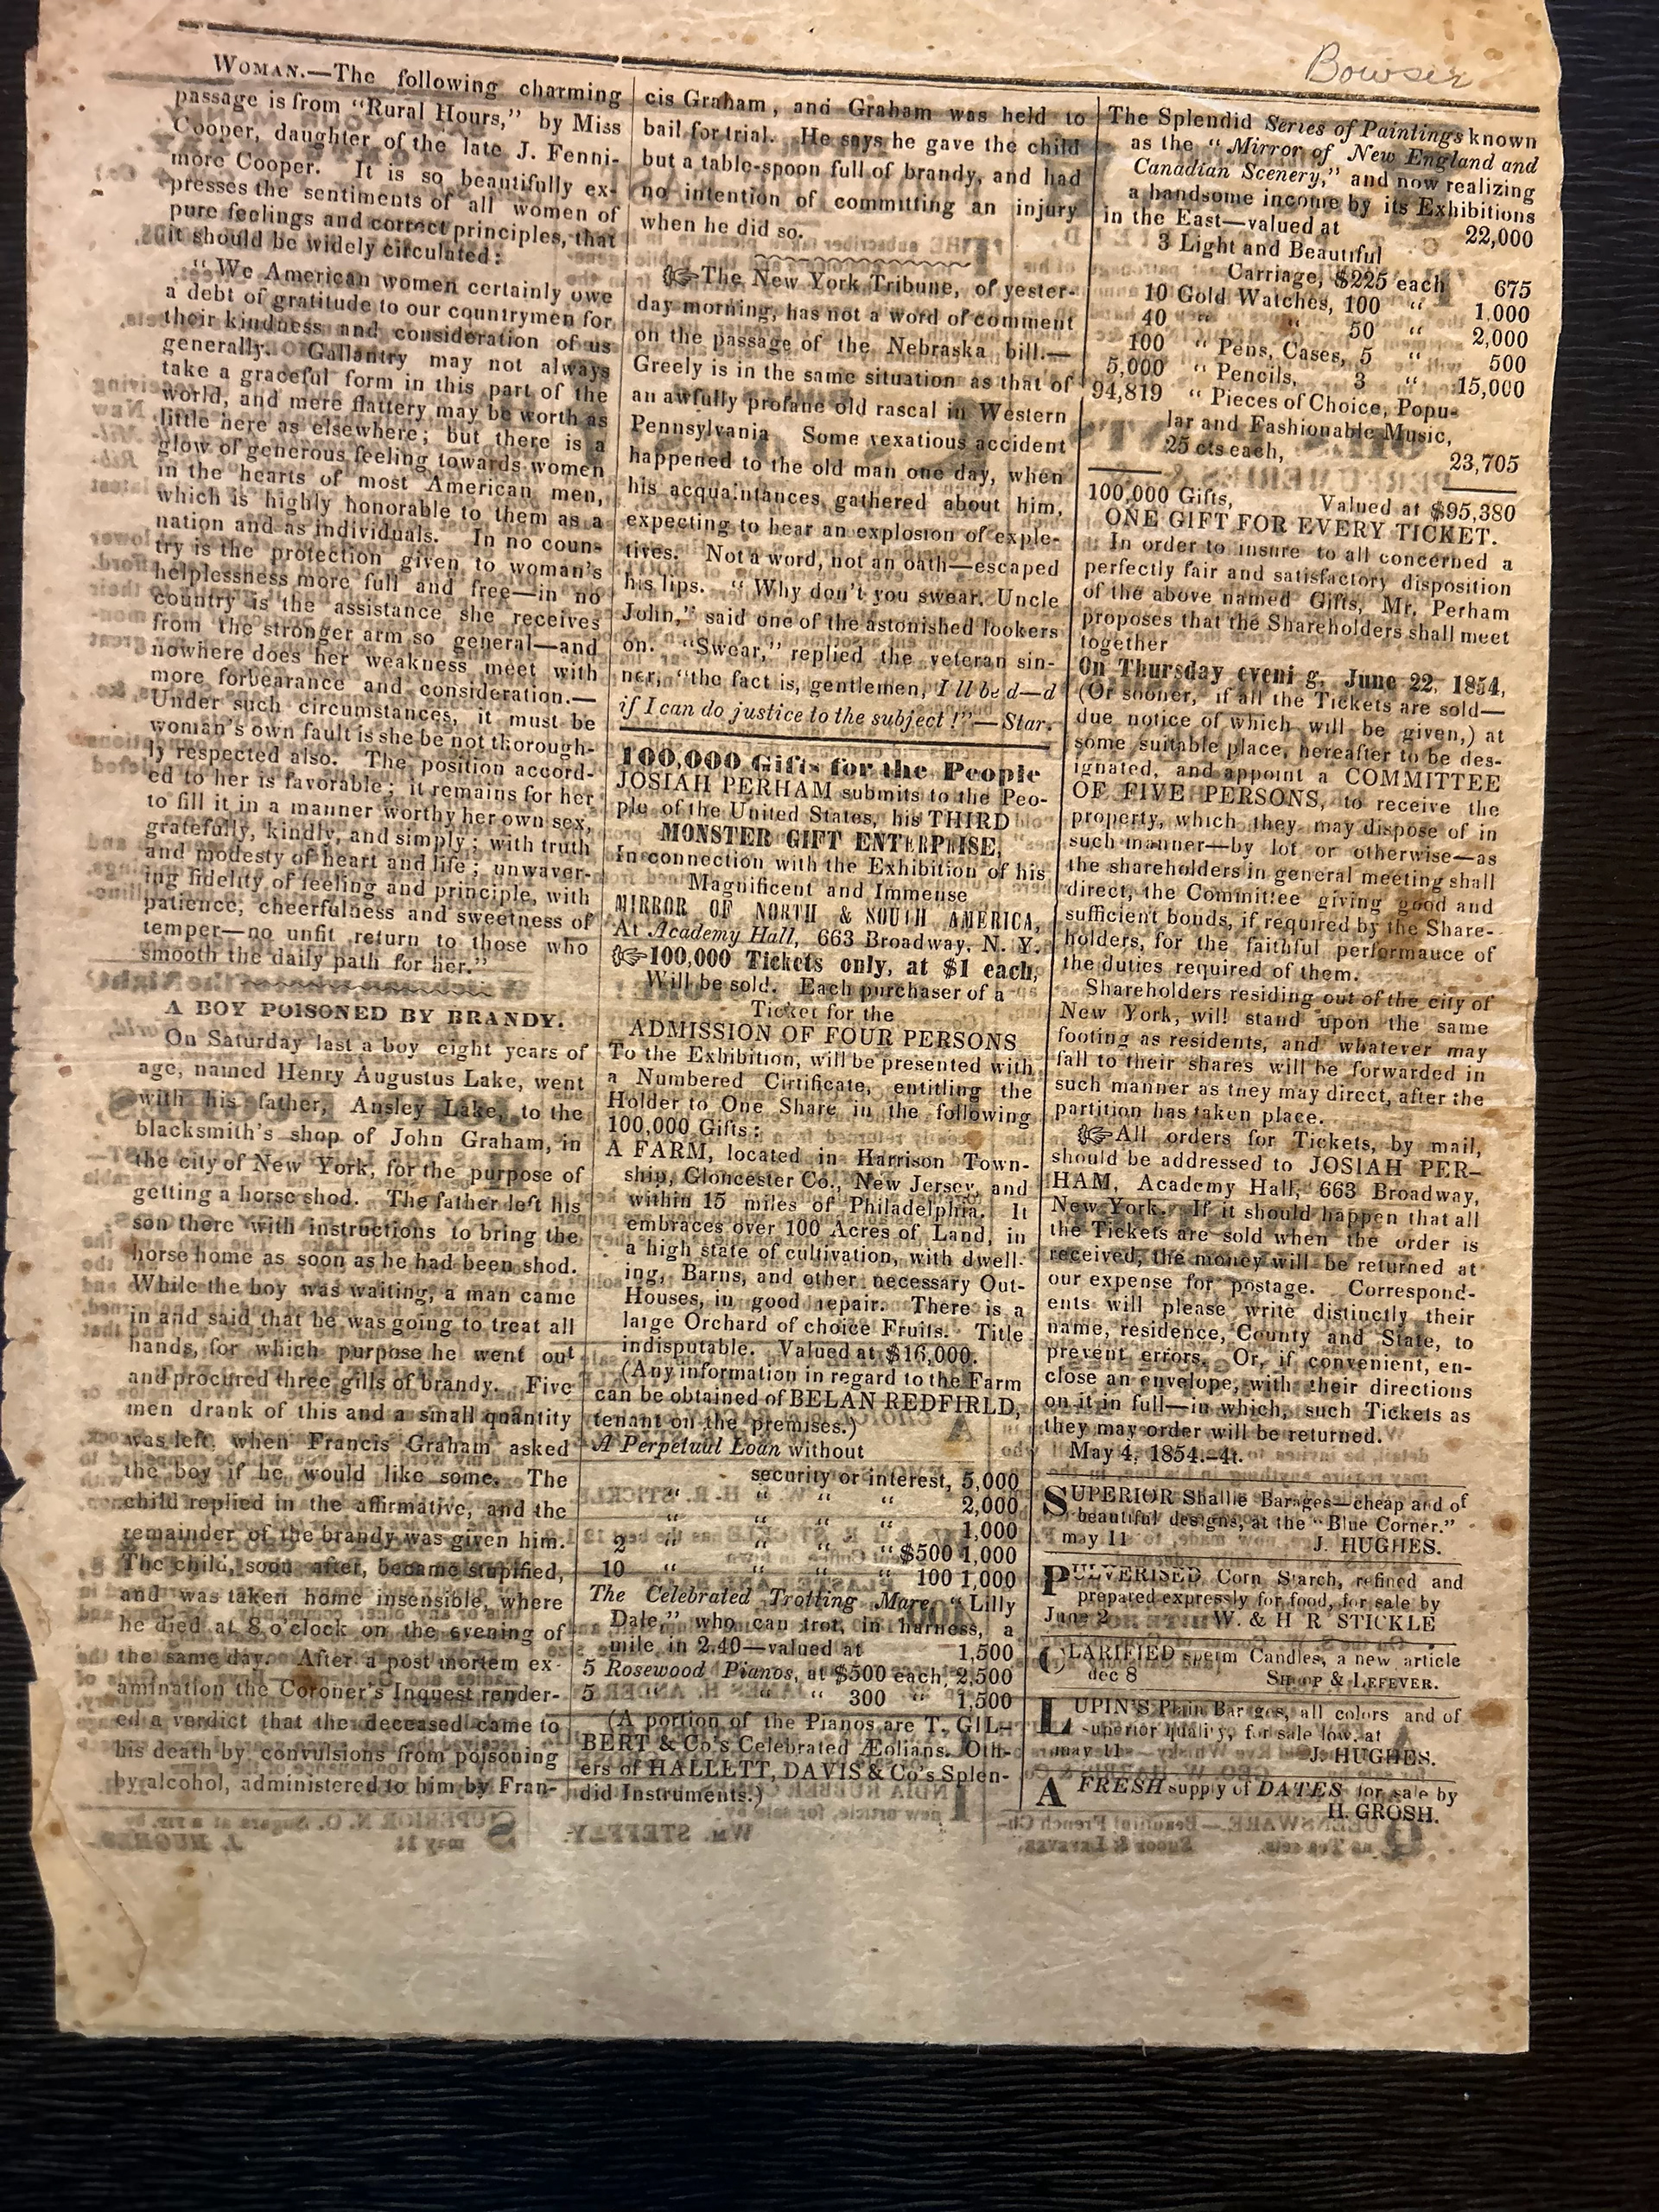 Bowser
WOMAN.—The following charming
passage is from "Rural Hours," by Miss
Cooper, daughter of the late J. Fenni-
more Cooper. It is so beautifully ex-
presses the sentiments of all women of
pure feelings and correct principles, that
it should be widely circulated:
"We American women certainly owe
a debt of gratitude to our countrymen for
their kindness and consideration of us
generally. Gallantry may not always
take a graceful form in this part of the
world, and mere flattery may be worth as
little here as elsewhere; but there is a
glow of generous feeling towards women
in the hearts of most American men,
which is highly honorable to them as a
nation and as individuals. In no coun-
try is the protection given to woman's
helplessness more full and free—in no
country is the assistance she receives
from the stronger arm so general—and
nowhere does her weakness meet with
more forbearance and consideration.—
Under such circumstances, it must be
woman's own fault is she be not thorough-
ly respected also. The position accord-
ed to her is favorable; it remains for her
to fill it in a manner worthy her own sex,
gratefully, kindly, and simply; with truth
and modesty of heart and life; unwaver-
ing fidelity of feeling and principle, with
patience, cheerfulness and sweetness of
temper—no unfit return to those who
smooth the daily path for her."
A BOY POISONED BY BRANDY.
On Saturday last a boy eight years of
age, named Henry Augustus Lake, went
with his father, Ansley Lake, to the
blacksmith's shop of John Graham, in
the city of New York, for the purpose of
getting a horse shod. The father left his
son there with instructions to bring the
horse home as soon as he had been shod.
While the boy was waiting, a man came
in and said that he was going to treat all
hands, for which purpose he went out
and procured three gills of brandy. Five
men drank of this and a small quantity
was left, when Francis Graham asked
the boy if he would like some. The
child replied in the affirmative, and the
remainder of the brandy was given him.
The child, soon after, became stupified,
and was taken home insensible, where
he died at 8 o'clock on the evening of
the same day. After a post mortem ex-
amination the Coroner's Inquest render-
ed a verdict that the deceased came to
his death by convulsions from poisoning
by alcohol, administered to him by Fran-
cis Graham, and Graham was held to
bail for trial. He says he gave the child
but a table-spoon full of brandy, and had
no intention of committing an injury
when he did so.
☞The New York Tribune, of yester-
day morning, has not a word of comment
on the passage of the Nebraska bill.—
Greely is in the same situation as that of
an awfully profane old rascal in Western
Pennsylvania Some vexatious accident
happened to the old man one day, when
his acquaintances gathered about him,
expecting to hear an explosion of exple-
tives. Not a word, not an oath—escaped
his lips. "Why don't you swear, Uncle
John," said one of the astonished lookers
on. "Swear," replied the veteran sin-
ner, "the fact is, gentlemen, I ll be d—d
if I can do justice to the subject!"—Star.
100,000 Gifts for the People
JOSIAH PERHAM submits to the Peo-
ple of the United States, his THIRD
MONSTER GIFT ENTERPRISE,
In connection with the Exhibition of his
Magnificent and Immense
MIRROR OF NORTH & SOUTH AMERICA,
At Academy Hall, 663 Broadway, N. Y.
☞100,000 Tickets only, at $1 each,
Will be sold. Each purchaser of a
Ticket for the
ADMISSION OF FOUR PERSONS
To the Exhibition, will be presented with
a Numbered Cirtificate, entitling the
Holder to One Share in the following
100,000 Gifts:
A FARM, located in Harrison Town-
ship, Gloncester Co., New Jersey, and
within 15 miles of Philadelphia. It
embraces over 100 Acres of Land, in
a high state of cultivation, with dwell-
ing, Barns, and other necessary Out-
Houses, in good repair. There is a
large Orchard of choice Fruits. Title
indisputable. Valued at $16,000.
(Any information in regard to the Farm
can be obtained of BELAN REDFIRLD,
tenant on the premises.)
A Perpetual Loan without
security or interest, 5,000
" " " " 2,000
" " " " 1,000
2 " " " " $500 1,000
10 " " " " 100 1,000
The Celebrated Trotting Mare, "Lilly
Dale," who can trot, in harness, a
mile in 2.40—valued at 1,500
5 Rosewood Pianos, at $500 each, 2,500
5 " " " 300 " 1,500
(A portion of the Pianos are T. GIL-
BERT & Co's Celebrated Æolians. Oth-
ers of HALLETT, DAVIS & Co's Splen-
did Instruments.)
The Splendid Series of Paintings known
as the "Mirror of New England and
Canadian Scenery," and now realizing
a handsome income by its Exhibitions
in the East—valued at 22,000
3 Light and Beautiful
Carriage, $225 each 675
10 Gold Watches, 100 " 1.000
40 " " 50 " 2,000
100 " Pens, Cases, 5 " 500
5,000 " Pencils, 3 " 15,000
94,819 " Pieces of Choice, Popu-
lar and Fashionable Music,
25 cts each, 23,705
100,000 Gifts, Valued at $95,380
ONE GIFT FOR EVERY TICKET.
In order to insure to all concerned a
perfectly fair and satisfactory disposition
of the above named Gifts, Mr. Perham
proposes that the Shareholders shall meet
together
On Thursday eveni g, June 22, 1854,
(Or sooner, if all the Tickets are sold—
due notice of which will be given,) at
some suitable place, hereafter to be des-
ignated, and appoint a COMMITTEE
OF FIVE PERSONS, to receive the
property, which they may dispose of in
such manner—by lot or otherwise—as
the shareholders in general meeting shall
direct, the Committee giving good and
sufficient bonds, if required by the Share-
holders, for the faithful performance of
the duties required of them.
Shareholders residing out of the city of
New York, will stand upon the same
footing as residents, and whatever may
fall to their shares will be forwarded in
such manner as they may direct, after the
partition has taken place.
☞All orders for Tickets, by mail,
should be addressed to JOSIAH PER-
HAM, Academy Hall, 663 Broadway,
New York. If it should happen that all
the Tickets are sold when the order is
received, the money will be returned at
our expense for postage. Correspond-
ents will please write distinctly their
name, residence, County and State, to
prevent errors. Or, if convenient, en-
close an envelope, with their directions
on it in full—in which, such Tickets as
they may order will be returned.
May 4, 1854.-4t.
SUPERIOR Shallie Barages—cheap and of
beautiful designs, at the "Blue Corner."
may 11 J. HUGHES.
PULVERISED Corn Starch, refined and
prepared expressly for food, for sale by
June 2 W. & H R STICKLE
CLARIFIED sperm Candles, a new article
dec 8 SHOP & LEFEVER.
LUPIN'S Plain Bar ges, all colors and of
superior quality, for sale low, at
may 11 J. HUGHES.
A FRESH supply of DATES for sale by
H. GROSH.